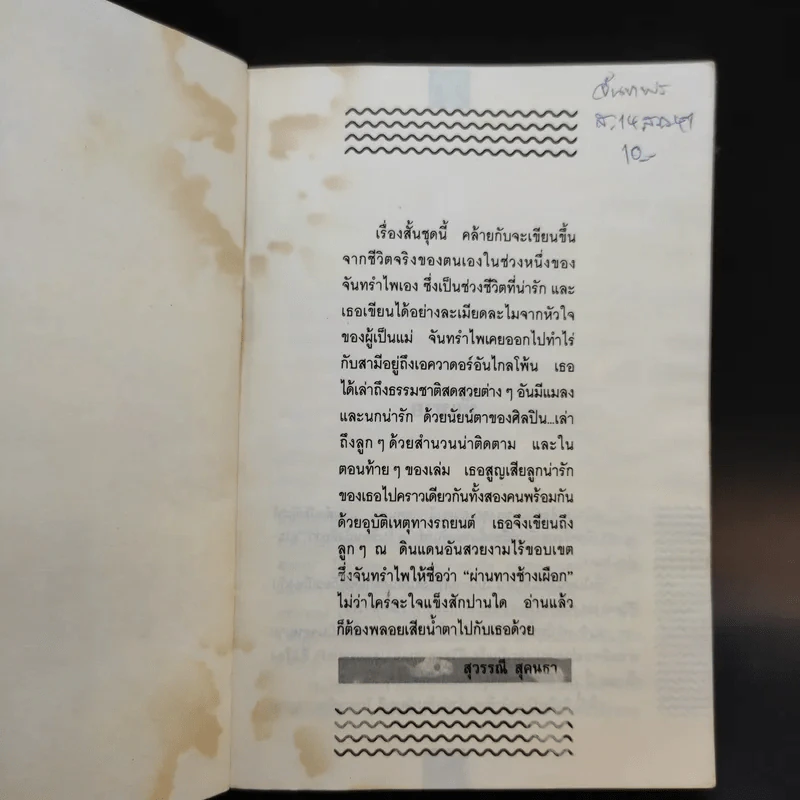 10.-
เรื่องสั้นชุดนี้ คล้ายกับจะเขียนขึ้น
จากชีวิตจริงของตนเองในช่วงหนึ่งของ
จันทรำไพเอง ซึ่งเป็นช่วงชีวิตที่น่ารัก และ
เธอเขียนได้อย่างละเมียดละไมจากหัวใจ
ของผู้เป็นแม่ จันทรำไพเคยออกไปทำไร่
กับสามีอยู่ถึงเอควาดอร์อันไกลโพ้น เธอ
ได้เล่าถึงธรรมชาติสดสวยต่าง ๆ อันมีแมลง
และนกน่ารัก ด้วยนัยน์ตาของศิลปิน...เล่า
ถึงลูก ๆ ด้วยสำนวนน่าติดตาม และใน
ตอนท้าย ๆ ของเล่ม เธอสูญเสียลูกน่ารัก
ของเธอไปคราวเดียวกันทั้งสองคนพร้อมกัน
ด้วยอุบัติเหตุทางรถยนต์ เธอจึงเขียนถึง
ลูก ๆ ณ ดินแดนอันสวยงามไร้ขอบเขต
ซึ่งจันทรำไพให้ชื่อว่า “ผ่านทางช้างเผือก”
ไม่ว่าใครจะใจแข็งสักปานใด อ่านแล้ว
ก็ต้องพลอยเสียน้ำตาไปกับเธอด้วย
สุวรรณี สุคนธา